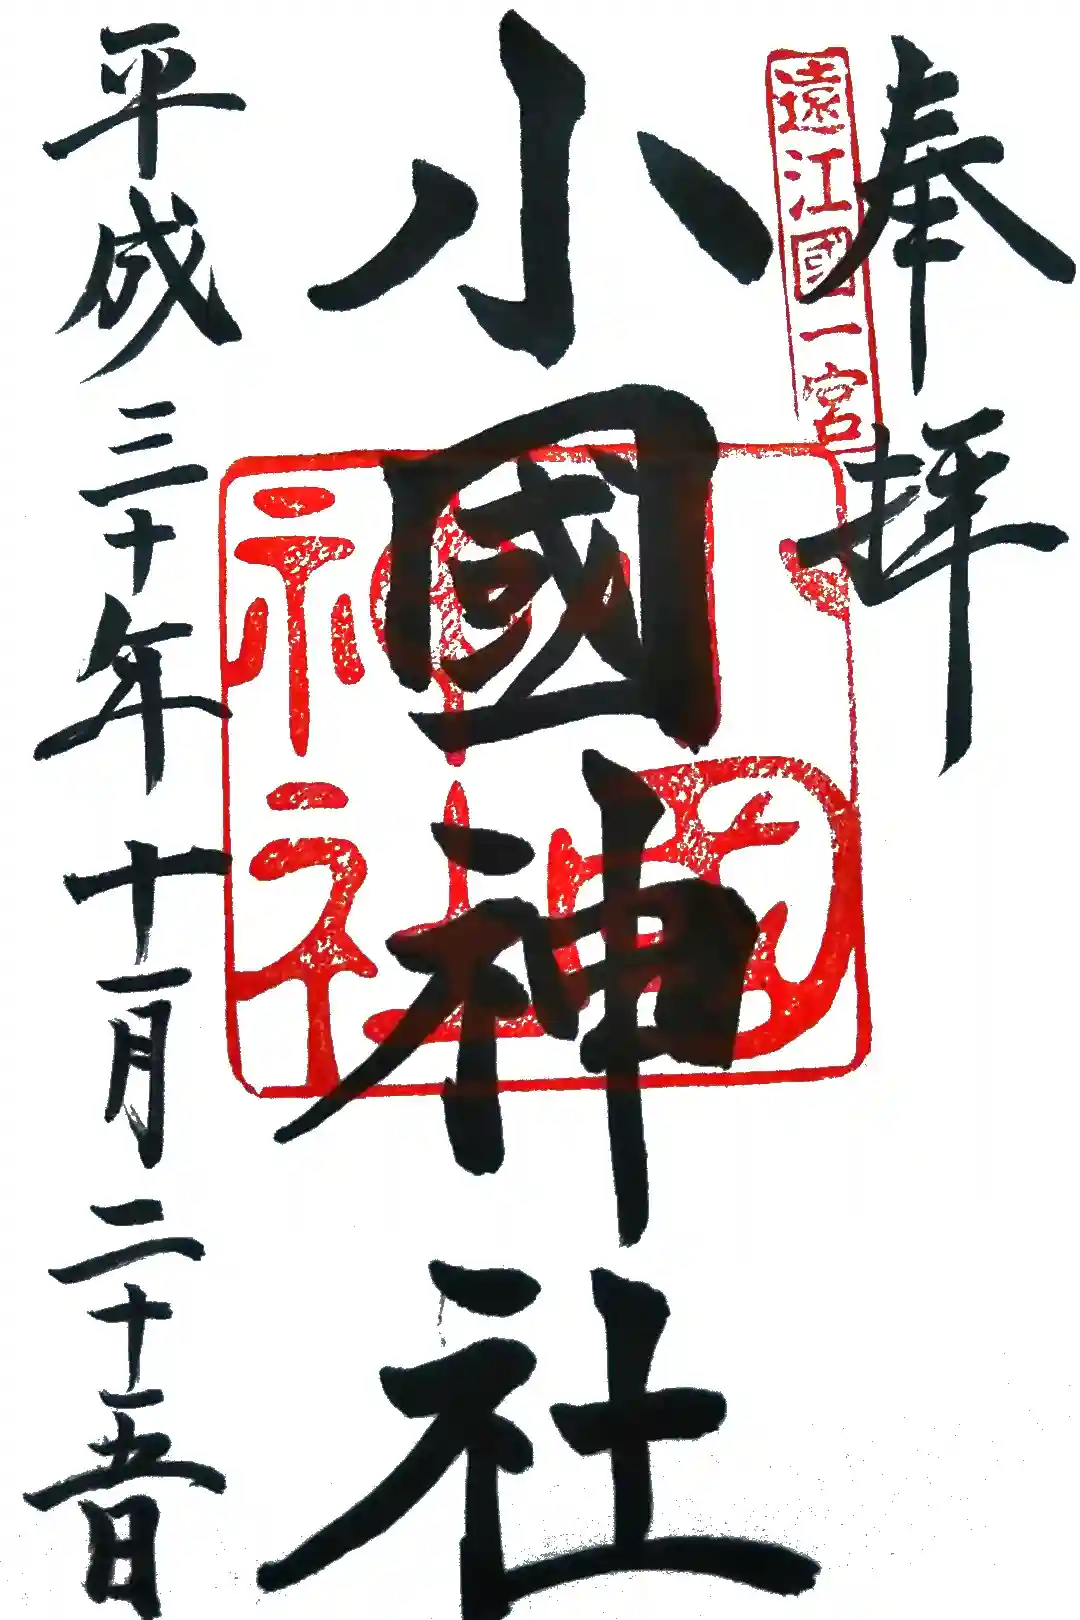 奉拝
遠江國一宮
小國神社
小國
神社
平成三十年十一月二十五日